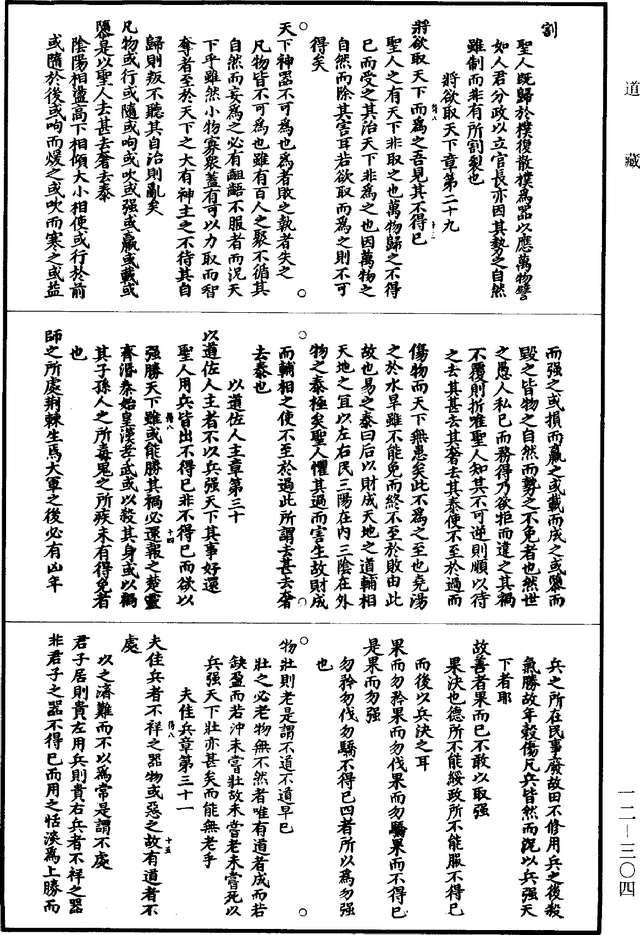 道藏
割
聖人既歸於樸復散樸為器以應萬物譬
如人君分政以立官長亦因其勢之自然
雖制而非有所割裂也
將欲取天下章第二十九
將欲取天下而為之吾見其不得已
聖人之有天下非取之也萬物歸之不得
已而受之其治天下非為之也因萬物之
自然而除其害耳若欲取而為之則不可
得矣
天下神器不可為也為者敗之執者失之
凡物皆不可為也雖有百人之聚不循其
自然而妄為之必有齟齬不服者而況天
下乎雖然小物寡衆蓋有可以力取而智
奪者至於天下之大有神主之不待其自
歸則叛不聽其自治則亂矣
凡物或行或隨或呴或吹或强或羸或載或
隳是以聖人去甚去奢去泰
陰陽相盪高下相傾大小相使或行於前
或隨於後或呴而煖之或吹而寒之或益
而强之或損而羸之或載而成之或隳而
毀之皆物之自然而勢之不免者也然世
之愚人私已而務得乃欲拒而違之其禍
不覆則折唯聖人知其不可逆則順以待
之去其甚去其奢去其泰使不至於過而
傷物而天下無患矣此不為之至也堯湯
之於水旱雖不能免而終不至於敗由此
故也易之泰曰后以財成天地之道輔相
天地之宜以左右民三陽在内三陰在外
物之泰極矣聖人懼其過而害生故財成
而輔相之使不至於過此所謂去甚去奢
去泰也
以道佐人主章第三十
以道佐人主者不以兵强天下其事好還
聖人用兵皆出不得已非不得已而欲以
强勝天下雖或能勝其禍必還報之楚靈
齊湣秦始皇漢孝武或以殺其身或以禍
其子孫人之所毒鬼之所疾未有得免者
也
師之所處荆棘生焉大軍之後必有凶年
兵之所在民事廢故田不修用兵之後殺
氣勝故年穀傷凡兵皆然而況以兵强天
下者耶
故善者果而已不敢以取强
果決也德所不能綏政所不能服不得已
而後以兵決之耳
果而勿矜果而勿伐果而勿驕果而不得已
是果而勿强
勿矜勿伐勿驕不得已四者所以為勿强
也
物壯則老是謂不道不道早已
壯之必老物無不然者唯有道者成而若
缺盈而若沖未嘗壯故未嘗老未嘗死以
兵强天下壯亦甚矣而能無老乎
夫佳兵章第三十一
夫佳兵者不祥之器物或惡之故有道者不
處
以之濟難而不以為常是謂不處
君子居則貴左用兵則貴右兵者不祥之器
非君子之器不得已而用之恬淡為上勝而
一二—三〇四